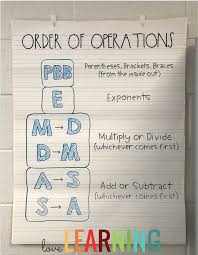 ORDER OF OPERATIONS
PBB
Parentheses, Brackets, Braces
(from the inside out)
E
Exponents
M → D
D → M
Multiply or Divide
(whichever comes first)
A → S
S → A
Add or Subtract
(whichever comes first)
love
LEARNING